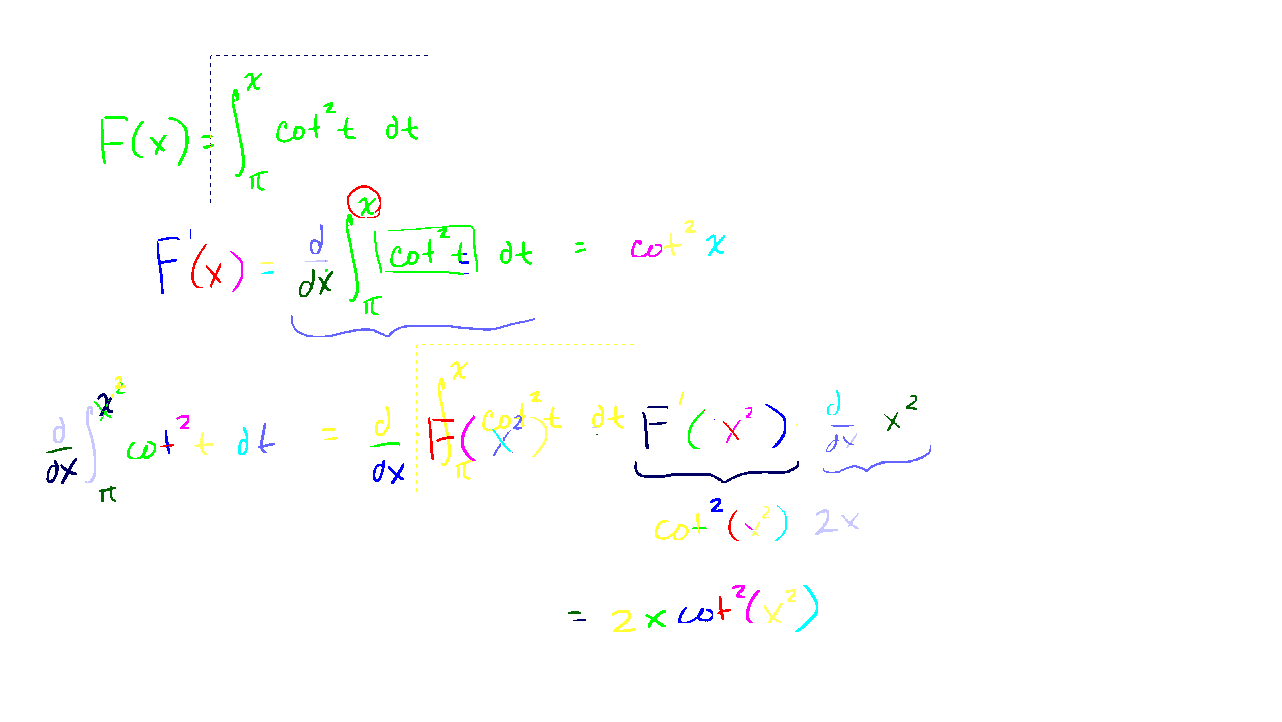 F(x) = ∫_π^x cot² t dt
F'(x) = d/dx ∫_π^x cot² t dt = cot² x
d/dx ∫_π^{x²} cot² t dt = d/dx F(x²) ∫_π^x cot² t dt F'(x²) d/dx x²
cot²(x²) 2x
= 2x cot²(x²)